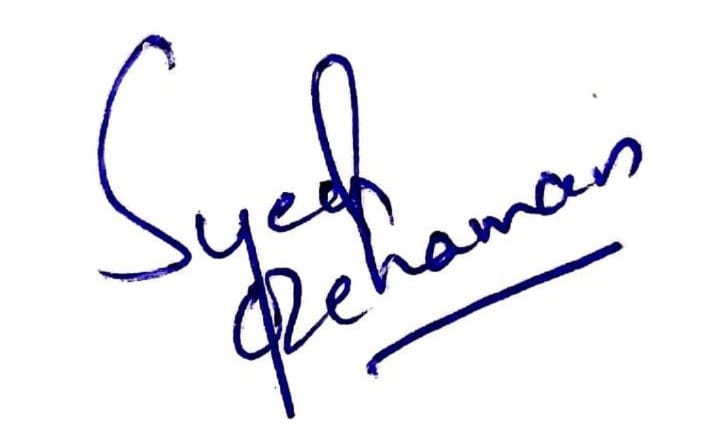 Syed
Rehaman